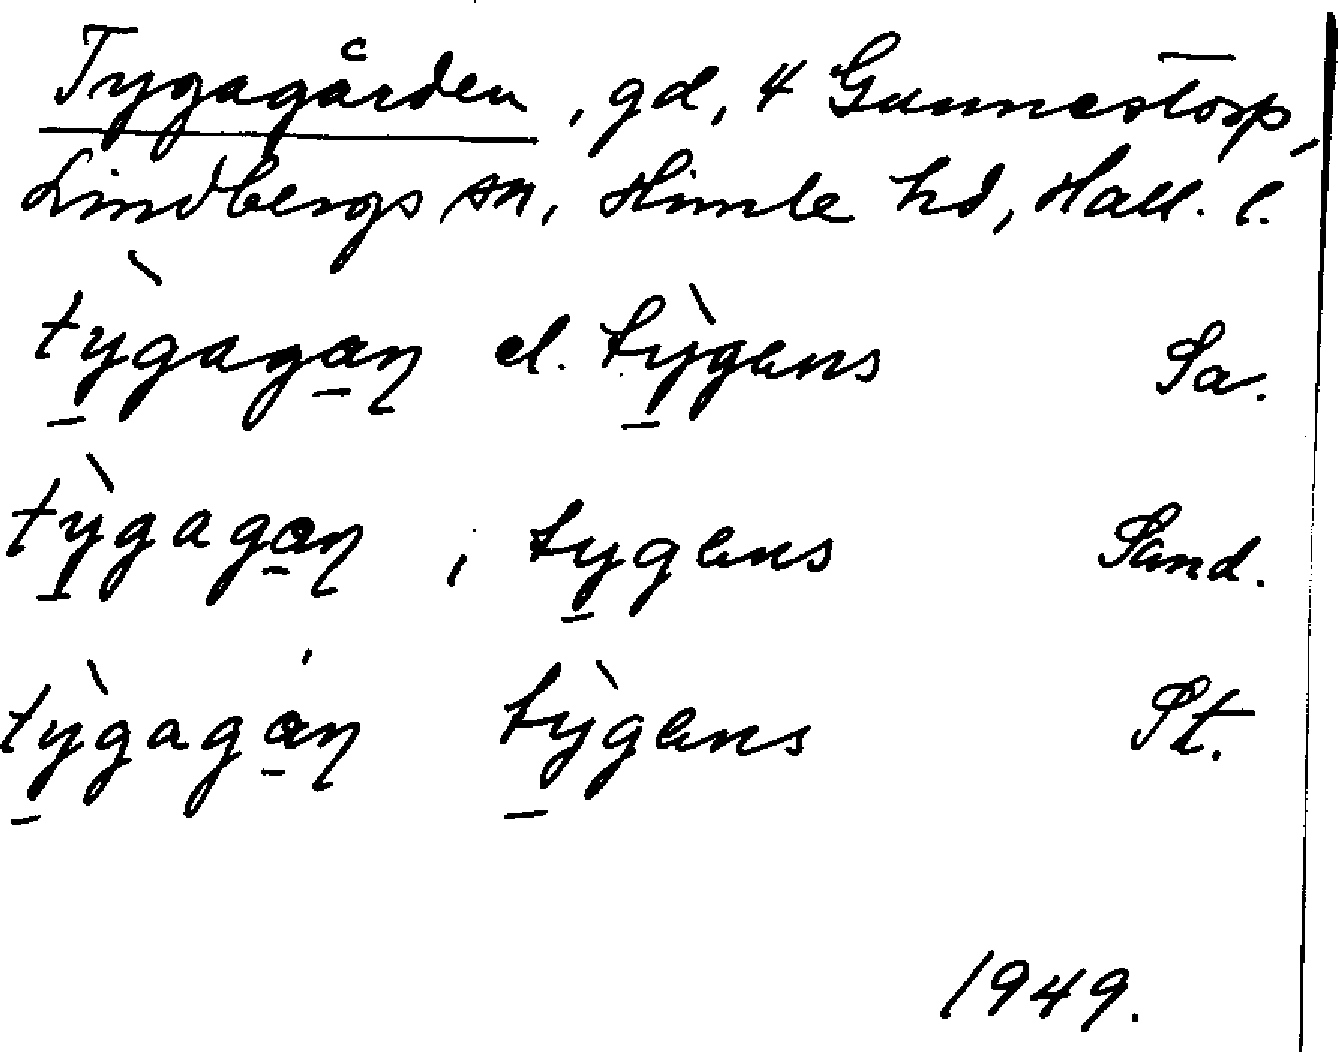 Tygagården, gd, 4 Gunnestorp,
Lindbergs sn, Himle hd, Hall. l.
tỳ̠gaga̠ŋ el. tỳ̠gens Sa.
tỳ̠gaga̠ŋ, ty̠gens Sand.
tỳ̠gagá̠ŋ tỳ̠gens St.
1949.